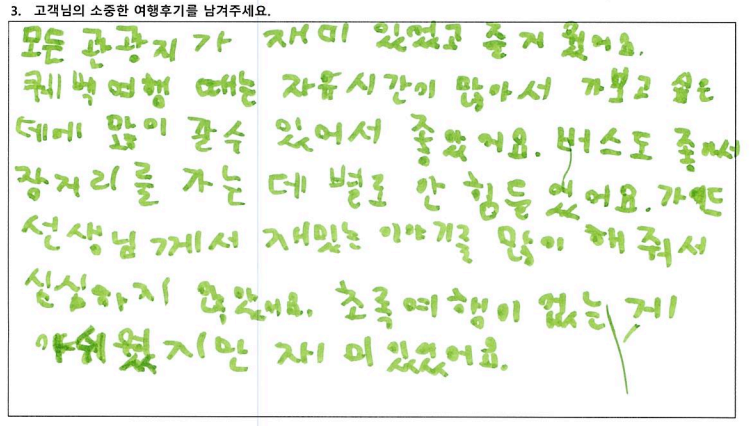 3. 고객님의 소중한 여행후기를 남겨주세요.
모든 관광지가 재미 있었고 즐거 웠어요.
퀘벡여행 때는 자유시간이 많아서 가보고 싶은
데에 많이 갈수 있어서 좋았어요. 버스도 좋아서
장거리를 가는데 별로 안 힘들었어요. 가이드
선생님 께서 재밌는 이야기를 많이 해 줘서
심심하지 않았어요. 초록여행이 없는 게
아쉬웠지만 재미있었어요.